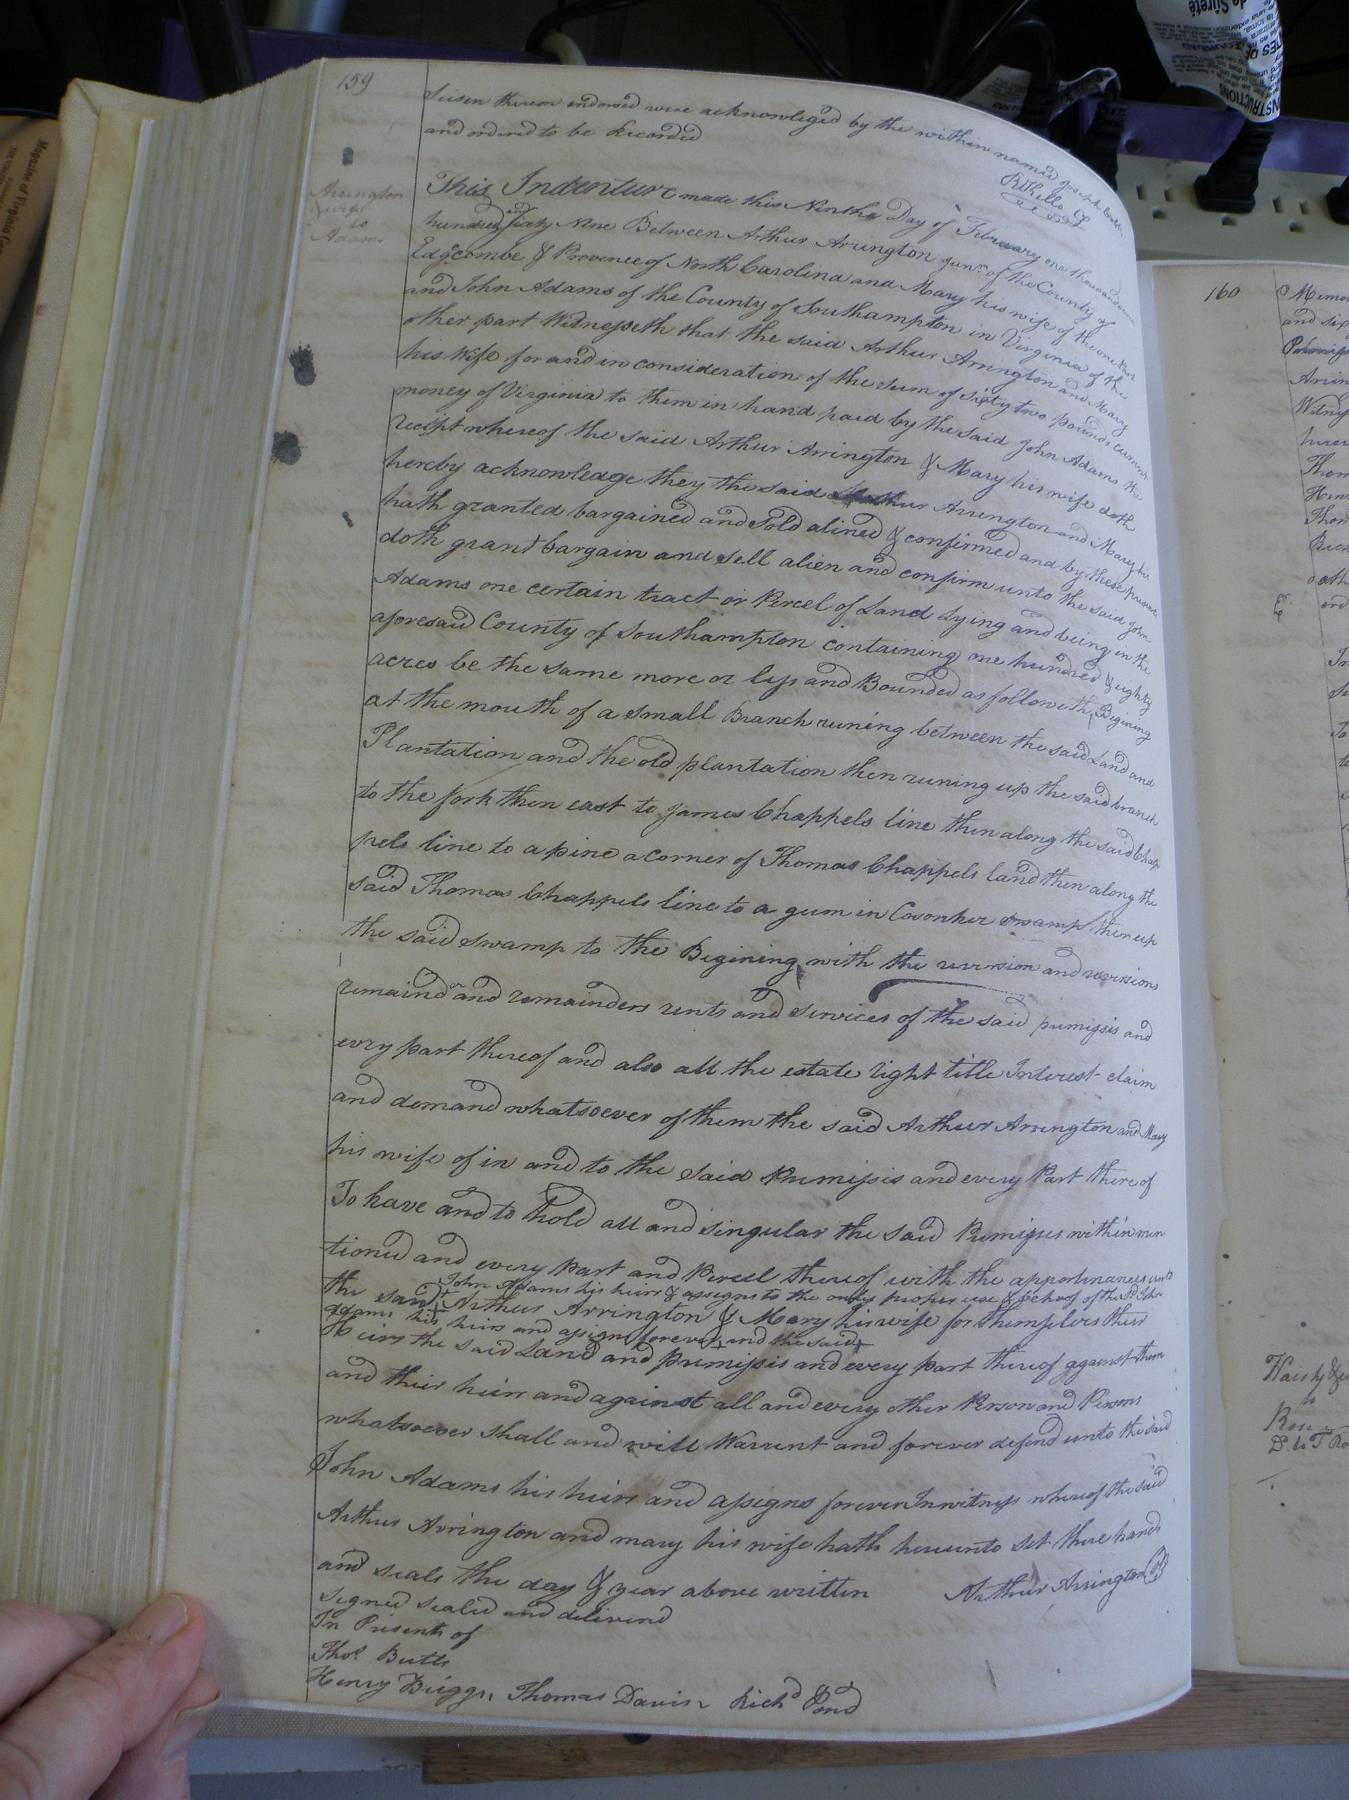 159
Seisen thereon endorsed were acknowleged by the within named
and ordered to be Recorded
RKello C
Arrington
& wife
to
Adams
This Indenture made this Ninth Day of February one thousand
hundred and Sixty Nine Between Arthur Arrington junr. of the County of
Edgcombe & Province of North Carolina and Mary his wife of the one Part
and John Adams of the County of Southampton in Virginia of the
other part Witnesseth that the said Arthur Arrington and Mary
his Wife for and in consideration of the Sum of Sixty two pounds current
money of Virginia to them in hand paid by the said John Adams the
receipt whereof the said Arthur Arrington & Mary his wife doth
hereby acknowledge they the said Arthur Arrington and Mary his
hath granted bargained and Sold aliened & confirmed and by these presents
doth grant bargain and Sell alien and confirm unto the said John
Adams one certain tract or Percel of Land Lying and being in the
aforesaid County of Southampton containing one hundred & eighty
acres be the same more or less and Bounded as followeth, Begining
at the mouth of a small Branch runing between the said Land and
Plantation and the old plantation then runing up the said branch
to the fork then east to James Chappels line then along the said Chap
pels line to a pine a corner of Thomas Chappels land then along the
said Thomas Chappels line to a gum in Cosonker swamp then up
the said swamp to the Begining with the revirsion and revirsions
remaindr and remainders rents and Services of the said premisis and
every part thereof and also all the estate right title Interest claim
and demand whatsoever of them the said Arthur Arrington and Mary
his wife of in and to the Said Premisis and every Part there of
To have and to hold all and singular the said Premisses within men
tioned and every Part and Percel thereof with the apportinances unto
John Adams his heirs & assigns to the only proper use & behoof of the sd. John
the said Arthur Arrington & Mary his wife for themselves their
Adams his heirs and assigns forever and the said
Heirs the said Land and premisis and every part thereof against them
and their heirs and against all and every other Person and Persons
whatsoever Shall and will Warrent and forever defend unto the said
John Adams his heirs and assigns forever In witness whereof the said
Arthur Arrington and mary his wife hath hereunto set there hands
and seals the day & year above written Arthur Arrington
signed sealed and deliverd
In Presents of
Thos. Butts
Henry Briggs, Thomas Davis Richd Pond
160
and six
Magazine of Virginia
de Sûreté